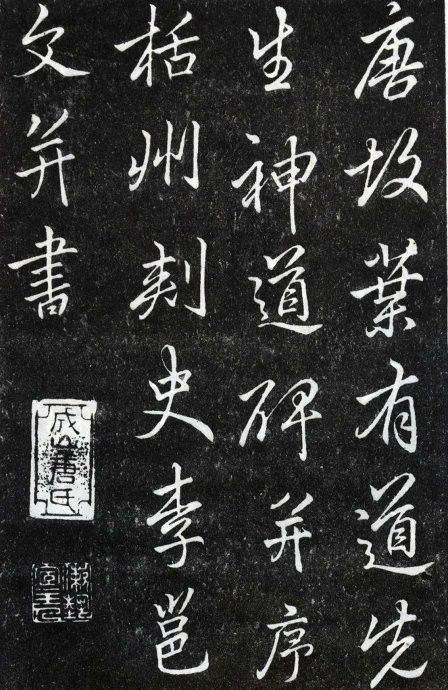 唐故葉有道先
生神道碑并序
栝州刾史李邕
文并書
成山唐氏